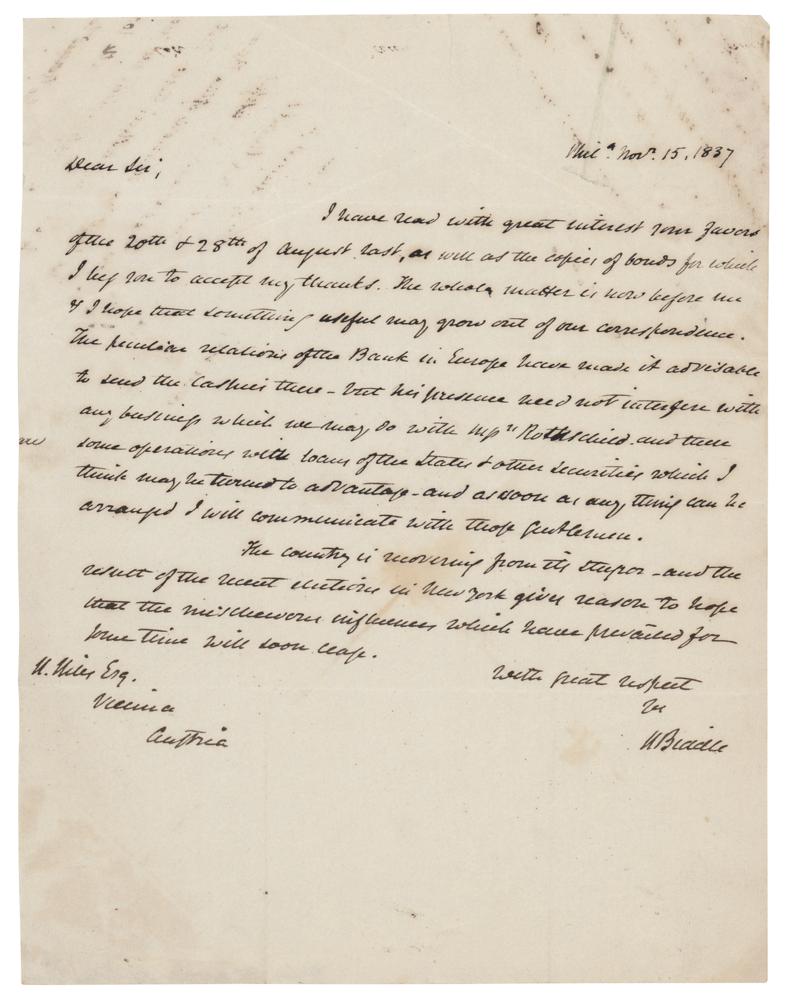 Phil.ª Nov.r 15, 1837
Dear Sir,
I have read with great interest your favors
of the 20th & 28th of August last, as well as the copies of bonds for which
I beg you to accept my thanks. The whole matter is now before me
& I hope that something useful may grow out of our correspondence.
The peculiar relations of the Bank in Europe have made it advisable
to send the Cashier there - but his presence need not interfere with
any business which we may do with Mess.rs Rothschild. and there
some operations with loans of the States & other securities which I
are
think may be turned to advantage - and as soon as any thing can be
arranged I will communicate with those Gentlemen.
The country is recovering from its stupor - and the
result of the recent elections in New York gives reason to hope
that the mischievous influences which have prevailed for
some time will soon cease.
With great respect
Yrs
N Biddle
N. Niles Esq.
Vienna
Austria